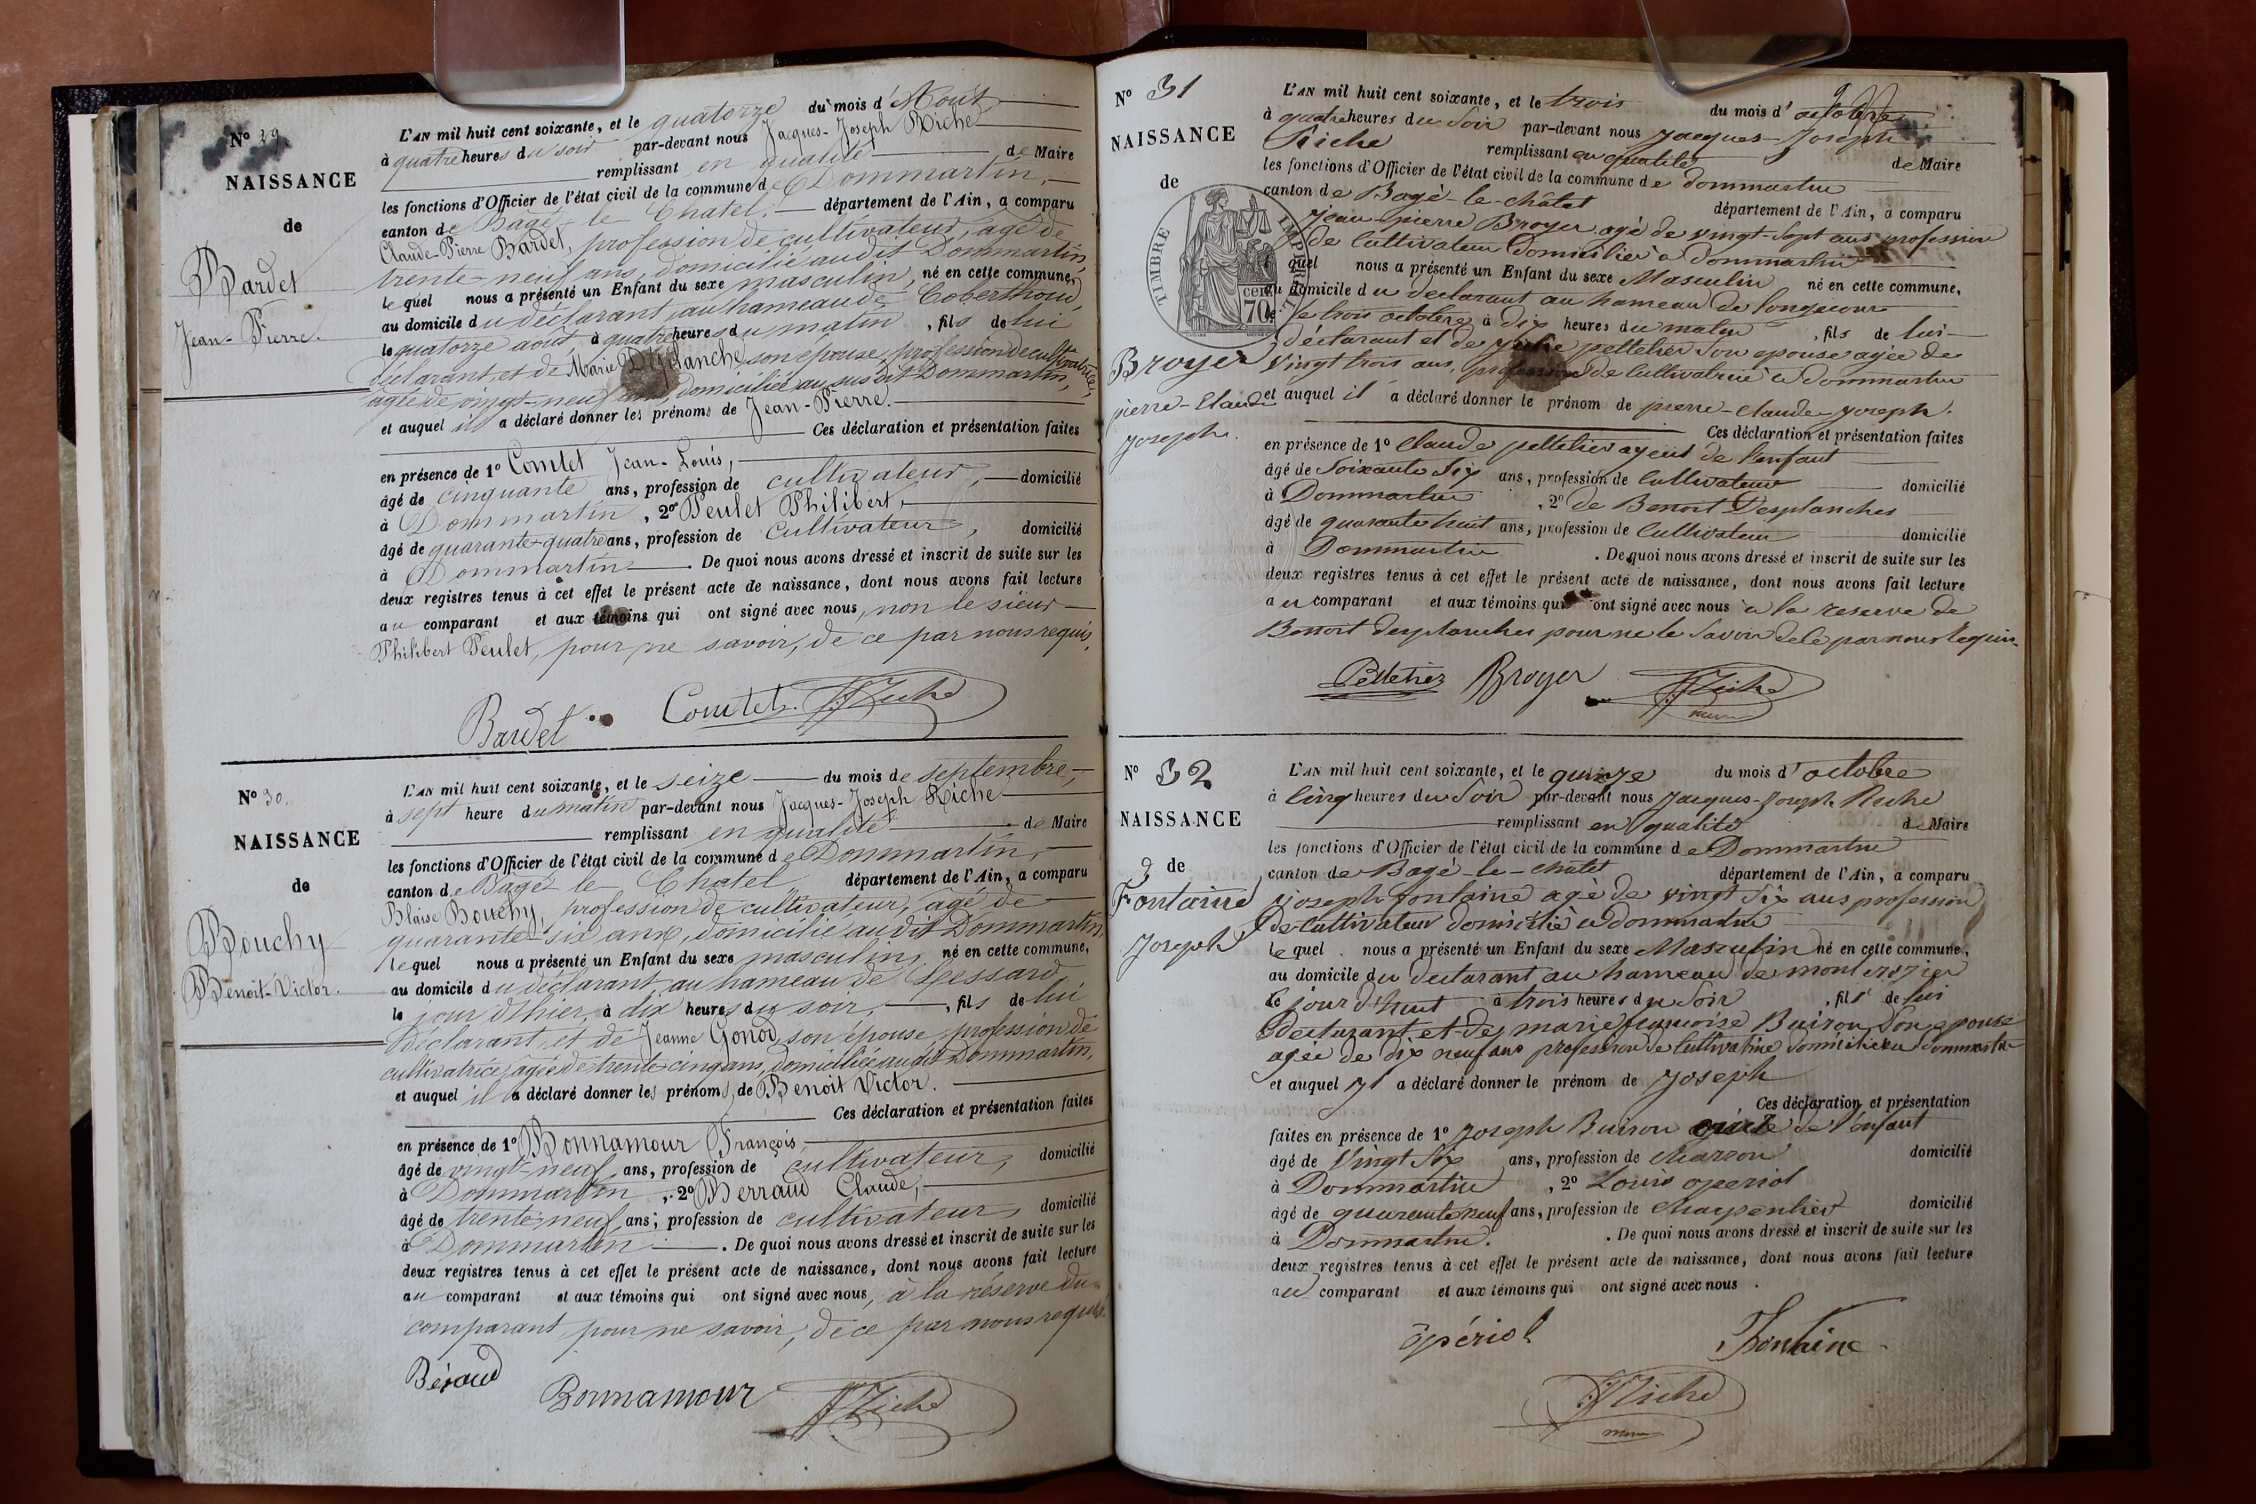 N° 29
NAISSANCE
de
Bardet
Jean-Pierre.
L'AN mil huit cent soixante, et le quatorze du mois d'Août
à quatre heures du soir par-devant nous Jacques-Joseph Riche
remplissant en qualité de Maire
les fonctions d'Officier de l'état civil de la commune de Dommartin,
canton de Bagé-le-Chatel, département de l'Ain, a comparu
Claude-Pierre Bardet, profession de cultivateur, âgé de
trente-neuf ans, domicilié audit Dommartin,
lequel nous a présenté un Enfant du sexe masculin, né en cette commune,
au domicile du déclarant, au hameau de Coberthoud,
le quatorze août, à quatre heures du matin, fils de lui
déclarant, et de Marie Desplanche son épouse, profession de cultivatrice,
agée de vingt-neuf ans, domiciliée au susdit Dommartin,
et auquel il a déclaré donner les prénoms de Jean-Pierre.
Ces déclaration et présentation faites
en présence de 1° Comtet Jean-Louis,
âgé de cinquante ans, profession de cultivateur, domicilié
à Dommartin, 2° Peulet Philibert,
âgé de quarante-quatre ans, profession de cultivateur, domicilié
à Dommartin. De quoi nous avons dressé et inscrit de suite sur les
deux registres tenus à cet effet le présent acte de naissance, dont nous avons fait lecture
au comparant et aux témoins qui ont signé avec nous, non le sieur
Philibert Peulet, pour ne savoir, de ce par nous requis.
Bardet Comtet JJ Riche
N° 30.
NAISSANCE
de
Bouchy
Benoit-Victor.
L'AN mil huit cent soixante, et le seize du mois de septembre,
à sept heure du matin par-devant nous Jacques-Joseph Riche
remplissant en qualité de Maire
les fonctions d'Officier de l'état civil de la commune de Dommartin,
canton de Bagé le Chatel département de l'Ain, a comparu
Blaise Bouchy, profession de cultivateur, âgé de
quarante-six ans, domicilié audit Dommartin,
lequel nous a présenté un Enfant du sexe masculin, né en cette commune,
au domicile du déclarant, au hameau de Lessard,
le jour d'hier, à dix heures du soir, fils de lui
déclarant, et de Jeanne Gonod, son épouse, profession de
cultivatrice, agée de trente-cinq ans, domiciliée audit Dommartin,
et auquel il a déclaré donner les prénoms de Benoit Victor.
Ces déclaration et présentation faites
en présence de 1° Bonnamour François,
âgé de vingt-neuf ans, profession de cultivateur, domicilié
à Dommartin, 2° Berraud Claude,
âgé de trente-neuf ans, profession de cultivateur, domicilié
à Dommartin. De quoi nous avons dressé et inscrit de suite sur les
deux registres tenus à cet effet le présent acte de naissance, dont nous avons fait lecture
au comparant et aux témoins qui ont signé avec nous, à la réserve du
comparant pour ne savoir, de ce par nous requis.
Béraud Bonnamour JJ Riche
N° 31
NAISSANCE
de
TIMBRE IMPERIAL
70 cen.
Broyer
pierre-Claude
joseph.
L'AN mil huit cent soixante, et le trois du mois d'octobre
à quatre heures du Soir par-devant nous jacques-joseph
Riche remplissant en qualité de Maire
les fonctions d'Officier de l'état civil de la commune de dommartin
canton de Bagé-le-châtel département de l'Ain, a comparu
Jean pierre Broyer agé de vingt-Sept ans profession
de Cultivateur domicilié à dommartin
lequel nous a présenté un Enfant du sexe Masculin né en cette commune,
au domicile du declarant au hameau de longecour
le trois octobre à dix heures du matin, fils de lui
déclarant et de pelletier Son epouse agée de
Vingt trois ans, profession de Cultivatrice à dommartin
et auquel il a déclaré donner le prénom de pierre-claude-joseph.
Ces déclaration et présentation faites
en présence de 1° Claude pelletier ayeul de l'enfant
âgé de Soixante Six ans, profession de Cultivateur domicilié
à Dommartin, 2° de Benoit Desplanches
âgé de quarante huit ans, profession de Cultivateur domicilié
à Dommartin. De quoi nous avons dressé et inscrit de suite sur les
deux registres tenus à cet effet le présent acte de naissance, dont nous avons fait lecture
au comparant et aux témoins qui ont signé avec nous à la reserve de
Benoit desplanches pour ne le Savoir de ce par nous Requis.
Pelletier Broyer JJ Riche
maire
N° 32
NAISSANCE
de
Fontaine
Joseph
L'AN mil huit cent soixante, et le quinze du mois d'octobre
à Cinq heures du Soir par-devant nous jacques-joseph Riche
remplissant en qualité de Maire
les fonctions d'Officier de l'état civil de la commune de Dommartin
canton de Bagé-le-châtel département de l'Ain, a comparu
joseph fontaine agé de vingt Six ans profession
de Cultivateur domicilié à dommartin
lequel nous a présenté un Enfant du sexe Masculin né en cette commune,
au domicile du declarant au hameau de
le jour d'huit à trois heures du Soir, fils de lui
declarant et de marie françoise Buiron Son epouse
agée de dix neuf ans profession de Cultivatrice domiciliée à dommartin
et auquel il a déclaré donner le prénom de joseph
Ces déclaration et présentation
faites en présence de 1° joseph Buiron de l'enfant
âgé de Vingt Six ans, profession de domicilié
à Dommartin, 2° Louis operiol
âgé de quarante neuf ans, profession de Charpentier domicilié
à Dommartin. De quoi nous avons dressé et inscrit de suite sur les
deux registres tenus à cet effet le présent acte de naissance, dont nous avons fait lecture
au comparant et aux témoins qui ont signé avec nous.
opériol Fontaine
JJ Riche
maire